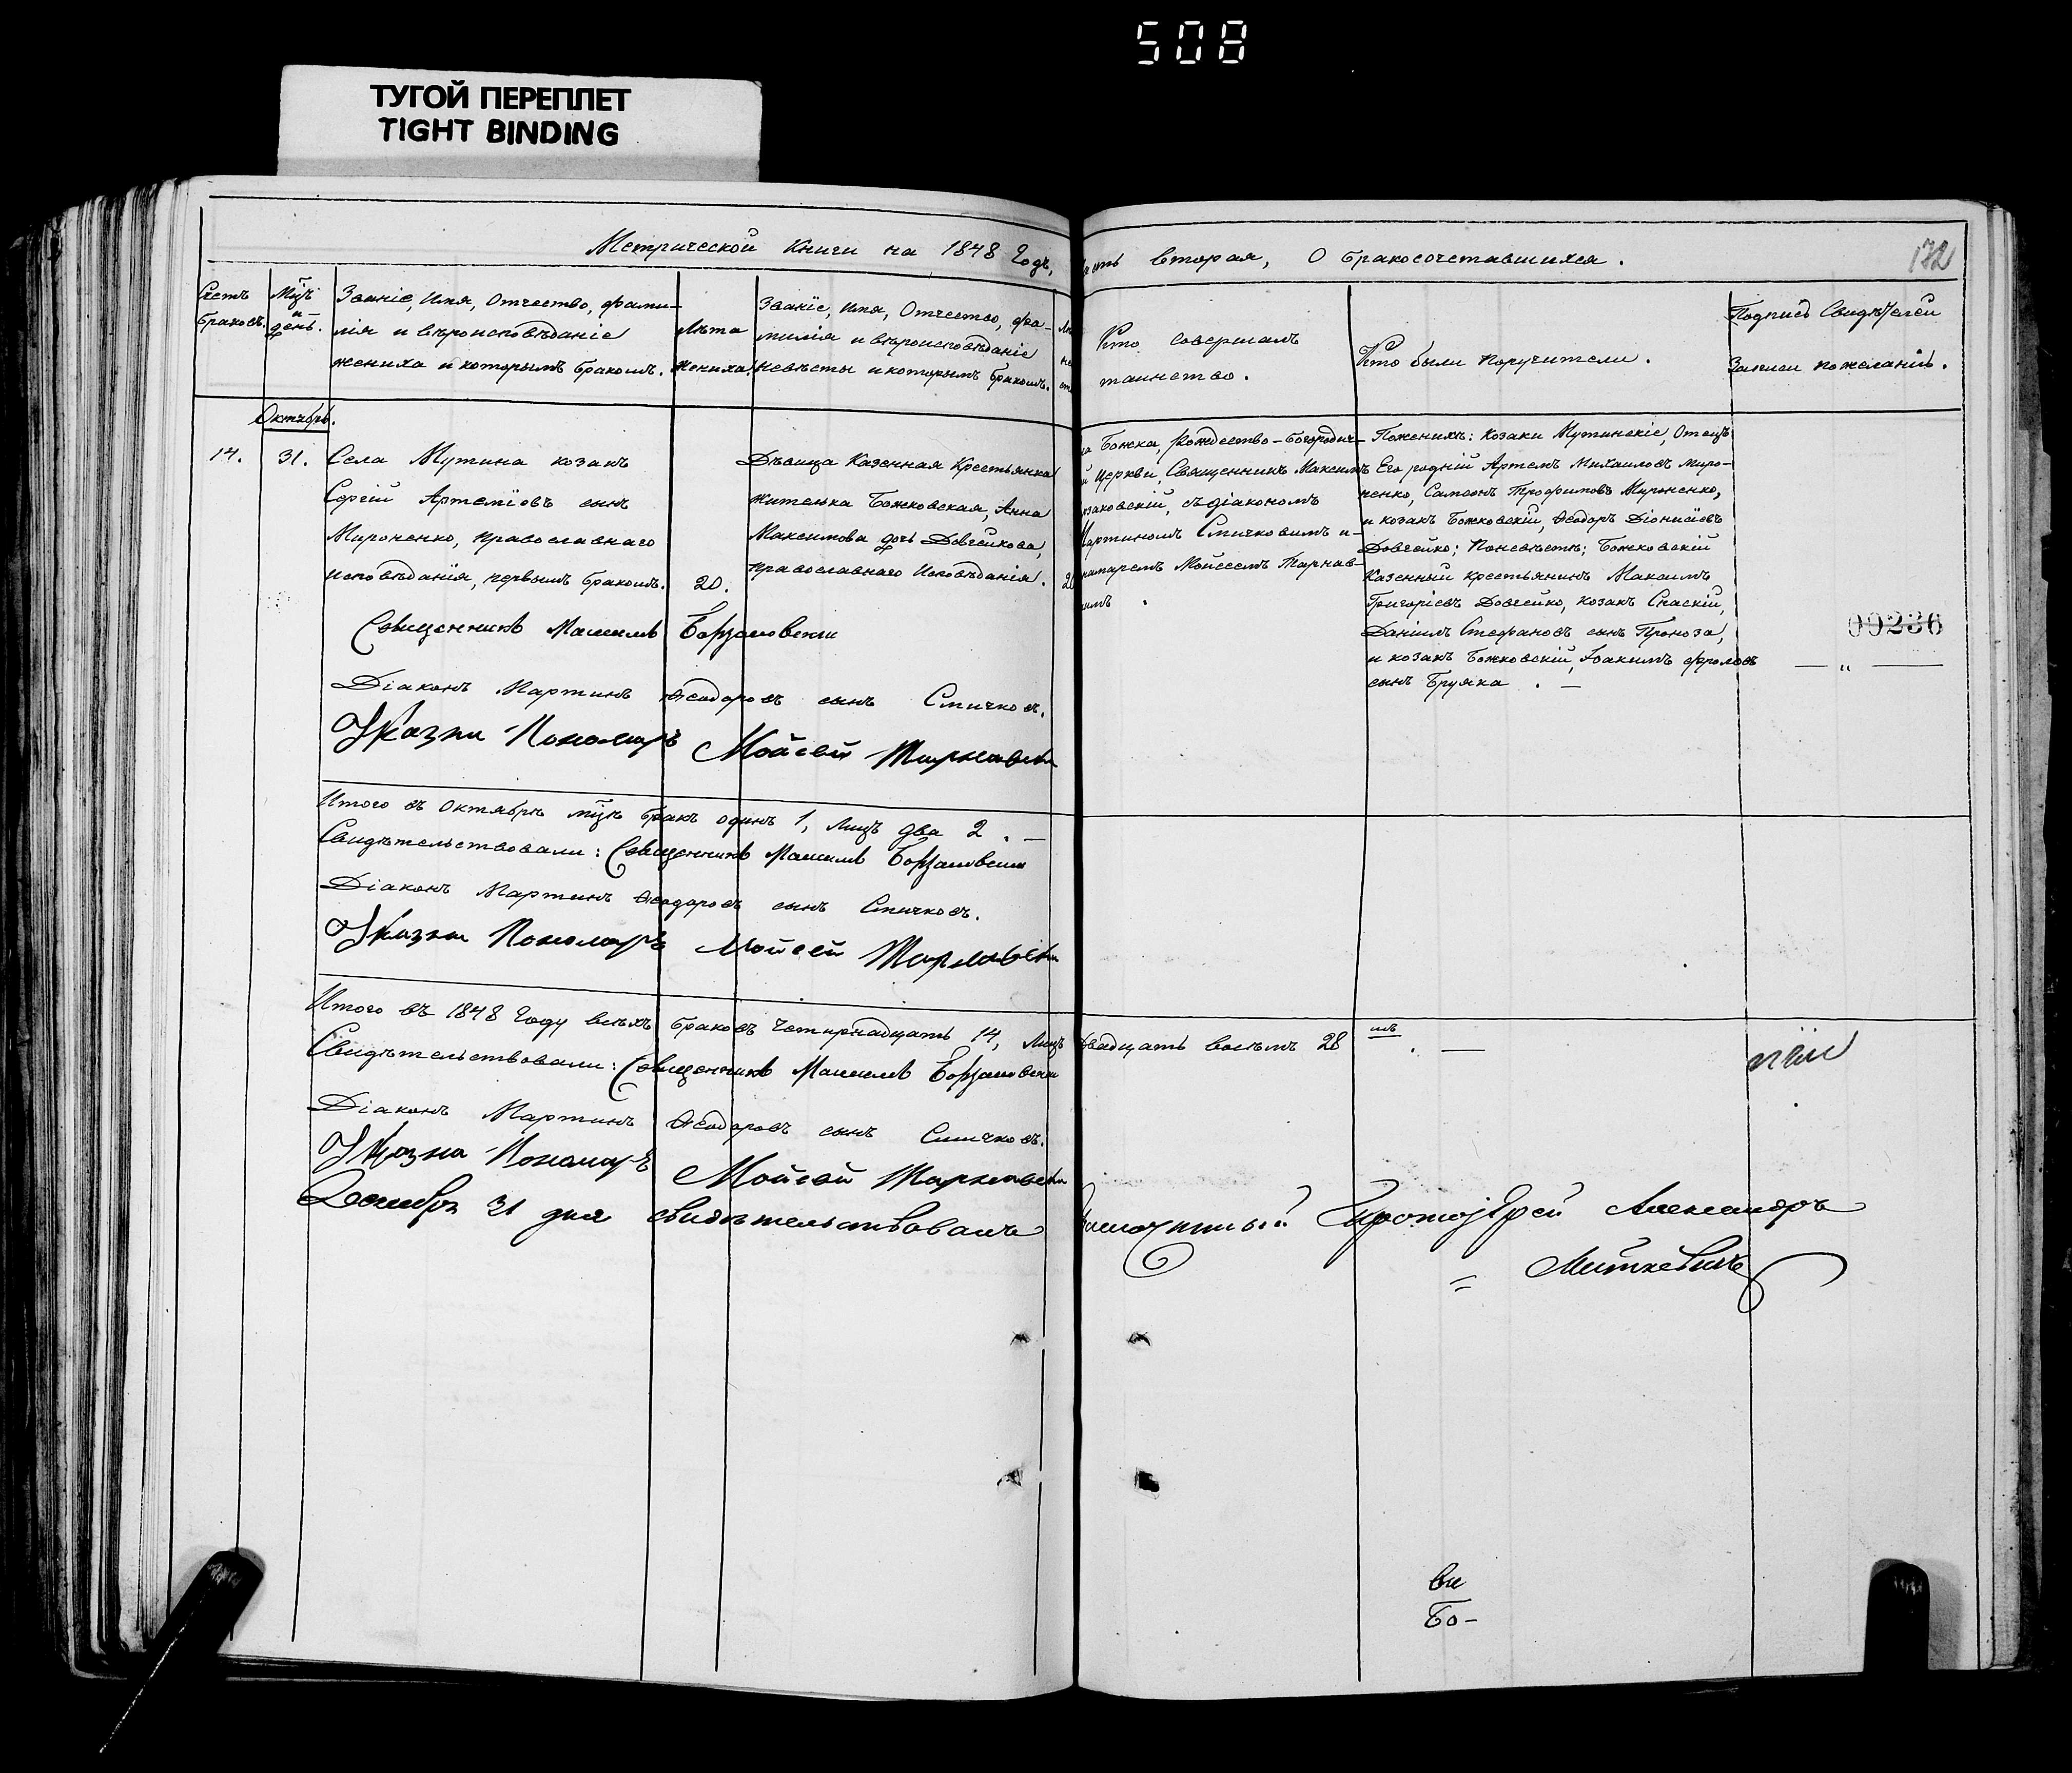 508
ТУГОЙ ПЕРЕПЛЕТ
TIGHT BINDING
Метрической Книги на 1848 Годъ,
асть вторая, О бракосочетавшихся.
172
Счетъ
браковъ.
Мцъ
и
день.
Званіе, Имя, Отчество, фами-
лія и вѣроисповѣданіе
жениха и которымъ бракомъ.
Лѣта
жениха.
Званіе, имя, Отчество, фа-
милія и вѣроисповѣданіе
невѣсты и которымъ бракомъ.
Кто совершалъ
таинство.
Кто были поручители.
Подпись Свидѣтелей
Записи пожеланію.
Октябрь.
14.
31.
Села Мутина козакъ
Сергій Артеміовъ сынъ
Мироненко, православнаго
исповѣданія, первымъ бракомъ.
20.
Дѣвица Казенная Крестьянка
жителька Божковская, Анна
Максимова дочь Довгейкова,
православнаго Исповѣданія.
20
Божка, Рождество-Богородич-
й Церкви, Священникъ Максимъ
рзаковскій, съ діакономъ
Мартиномъ Смичковимъ и
номаремъ Мойсеемъ Тарнав-
имъ.
Поженихѣ: козаки Мутинскіе, Отецъ
Его родній Артемъ Михаиловъ Миро-
ненко, Самсонъ Трофимовъ Мироненко,
и козакъ Божковскій, Ѳеодоръ Діонисіовъ
Довгейко; Поневѣстѣ; Божковскій
Казенный крестьянинъ Максимъ
Григоріевъ Довгейко, козакъ Спаскій,
Даніилъ Стефановъ сынъ Проноза,
и козакъ Божковскій, Іоакимъ Фроловъ
сынъ Бруяка. —
00236
— „ —
Священникъ Максимъ Борзаковскій
Діаконъ Мартинъ Ѳеодоровъ сынъ Смичковъ.
Указни Пономаръ Мойсей Тарнавски
Итого въ Октябрѣ мцѣ бракъ одинъ 1, лицъ два 2. —
Свидѣтельствовали: Священникъ Максимъ Борзаковскій
Діаконъ Мартинъ Ѳеодоровъ сынъ Смичковъ.
Указни Пономаръ Мойсей Тарнавски
Итого въ 1848 Году всѣхъ браковъ Четирнадцать 14, Лицъ двадцать восьмъ 28 . —
Свидѣтельствовали: Священникъ Максимъ Борзаковскій
Діаконъ Мартинъ Ѳеодоровъ сынъ Смичковъ.
Указни Пономаръ Мойсей Тарнавски
Декабря 31 дня свидѣтельствовалъ Протоіерей Александръ
Миткевичъ
Бо-